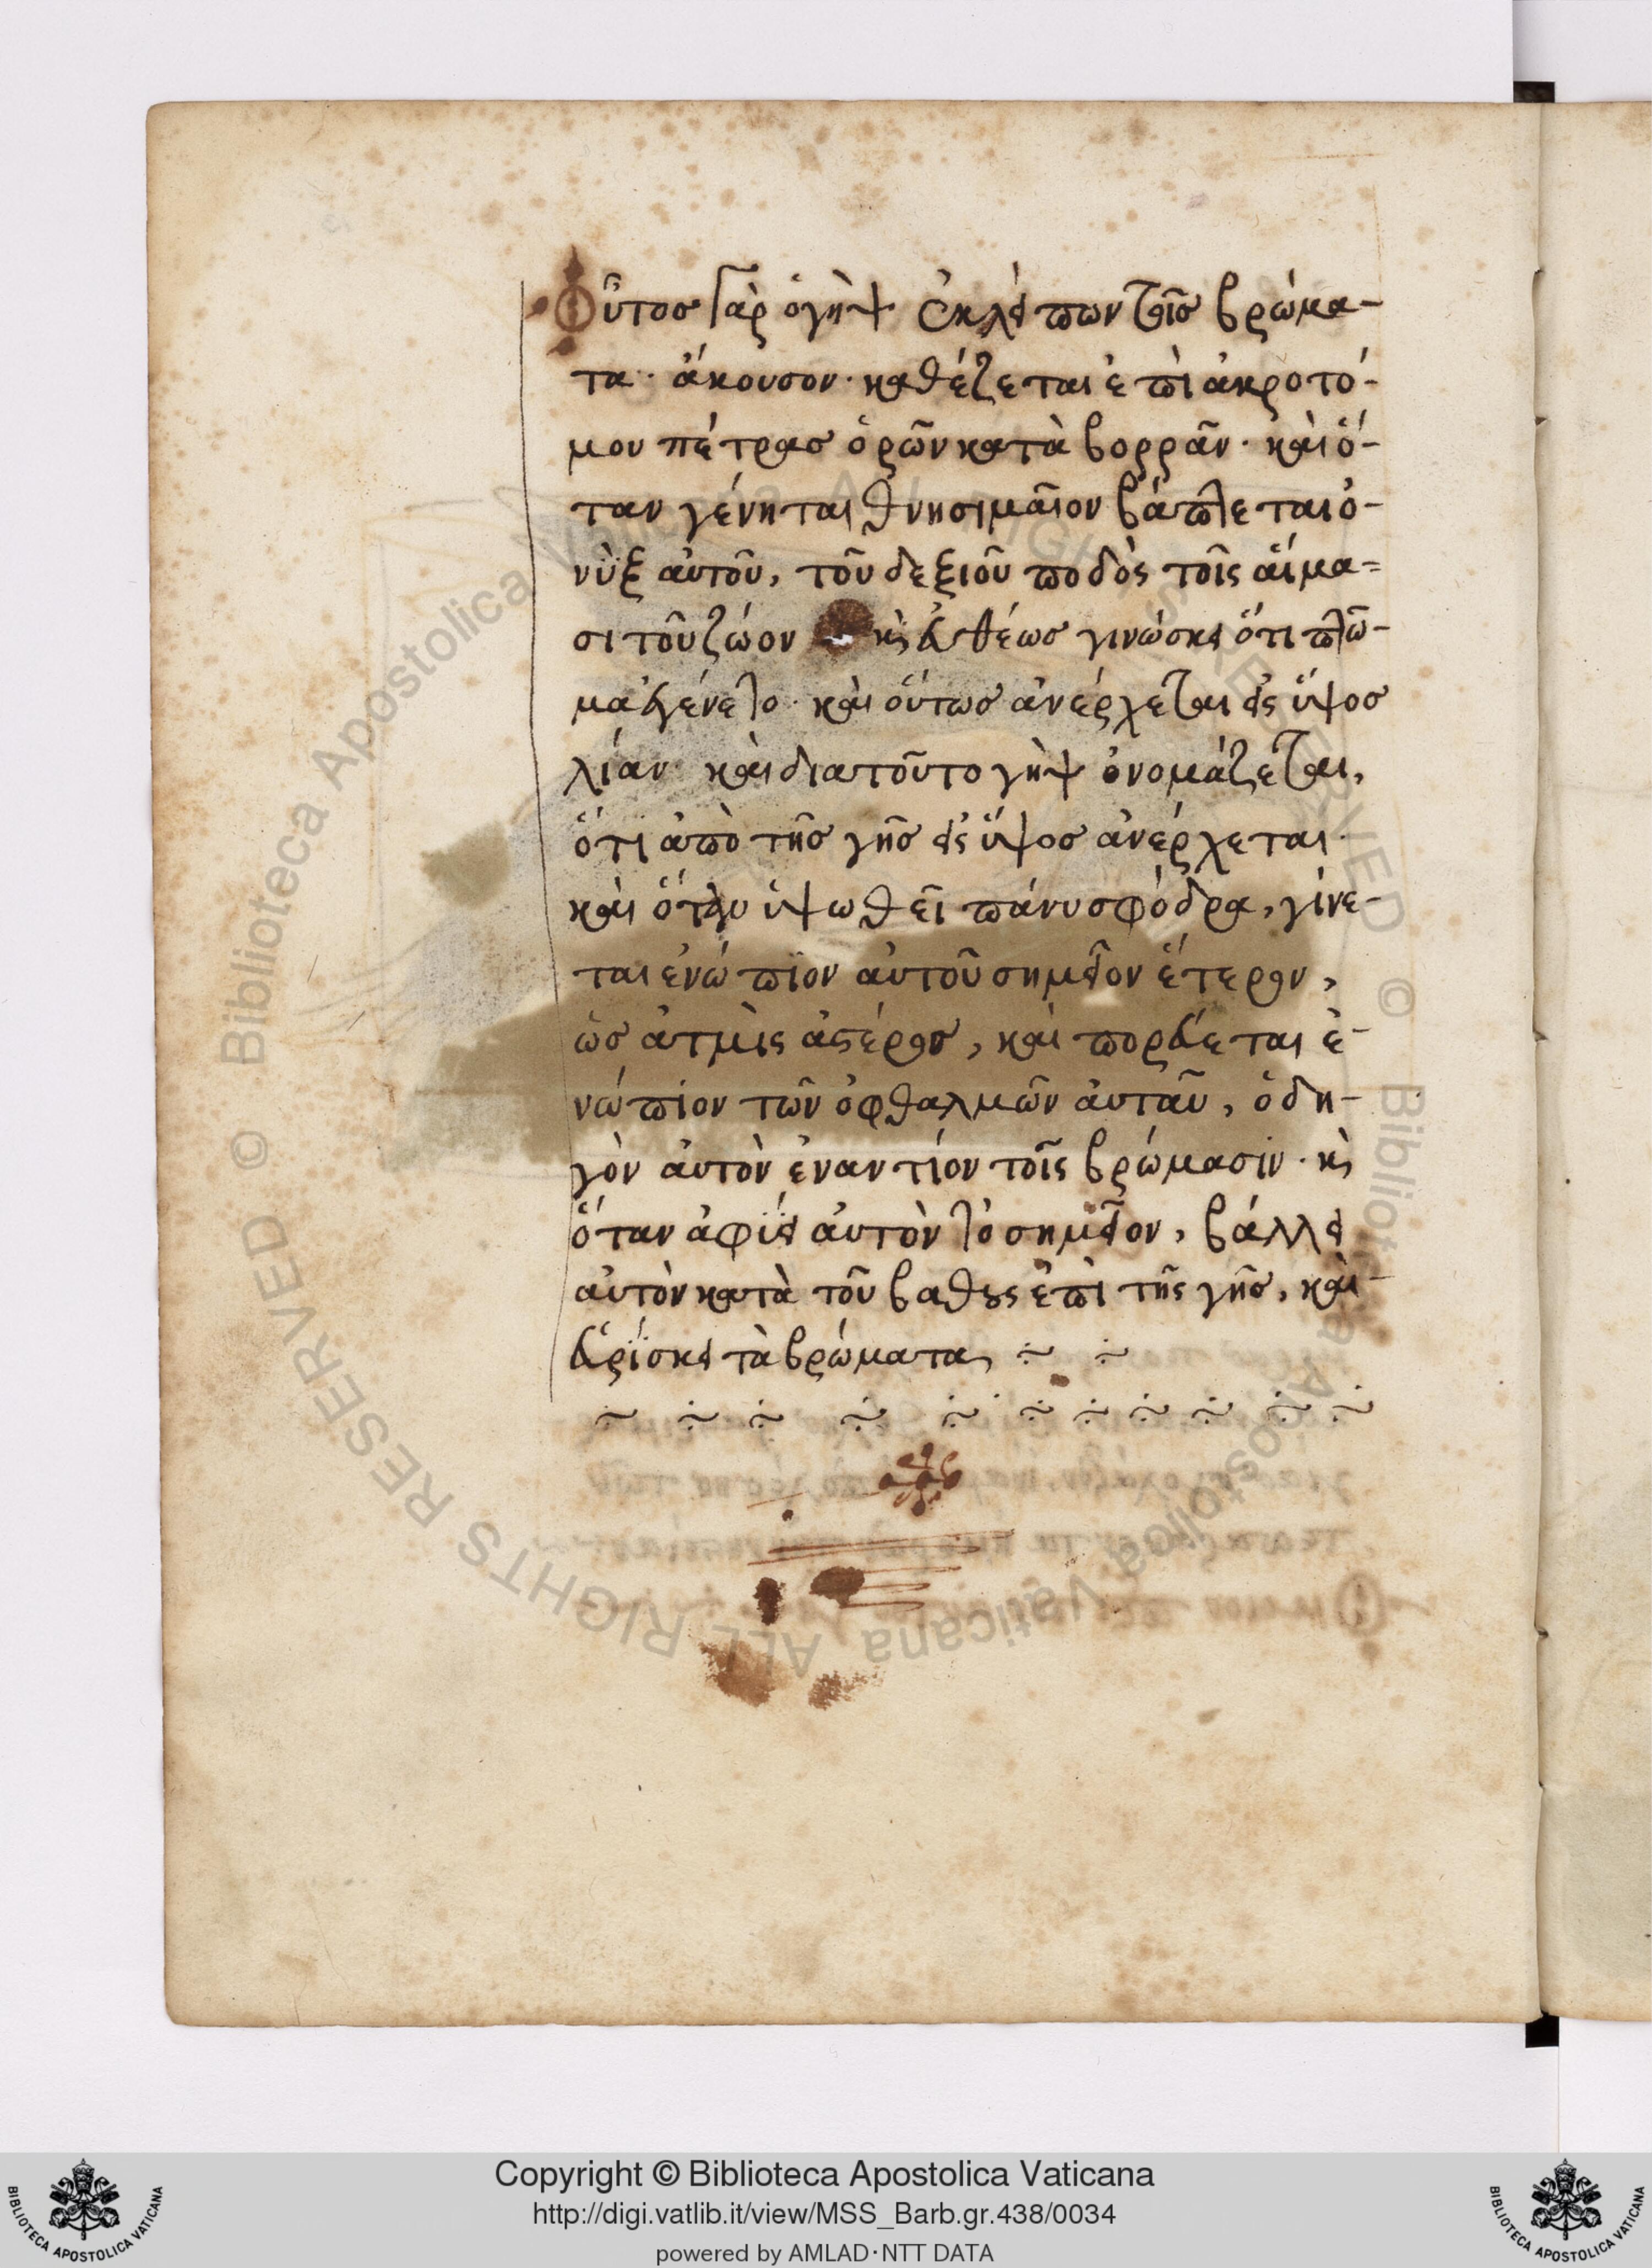 Οὗτος γὰρ ὁ γὴψ ἐκλείπων τοῖς βρώμα-
τα· ἄκουσον· καθέζεται ἐπὶ ἀκροτό-
μου πέτρας ὁρῶν κατὰ βορρᾶν· καὶ ὅ-
ταν γένηται θνησιμαῖον βάπτεται ὀ-
νὺξ αὐτοῦ, τοῦ δεξιοῦ ποδὸς τοῖς αἵμα=
σι τοῦ ζώον κ̀ εὐθέως γινώσκει ὅτι πτῶ-
μα ἐγένετο· καὶ οὕτως ἀνέρχεται εἰς ὕψος
λίαν· καὶ διατοῦτο γὴψ ὀνομάζεται,
ὅτι ἀπὸ τῆς γῆς εἰς ὕψος ἀνέρχεται·
καὶ ὅταν ὑψωθεῖ πάνυ σφόδρα, γίνε-
ται ἐνώπιον αὐτοῦ σημεῖον ἕτερον,
ὡς ἀτμὶς ἀστέρος, καὶ πορεύεται ἐ-
νώπιον τῶν ὀφθαλμῶν αὐτοῦ, ὁδη-
γὸν αὐτὸν ἐναντίον τοῖς βρώμασιν· κ̀
ὅταν ἀφίει αὐτὸν τὸ σημεῖον, βάλλει
αὐτὸν κατὰ τοῦ βαθους ἐπὶ τῆς γῆς, καὶ-
εὑρίσκει τὰ βρώματα ÷ ÷
÷ ÷ ÷ ÷ ÷ ÷ ÷ ÷ ÷ ÷ ÷
© Biblioteca Apostolica Vaticana ALL RIGHTS RESERVED
© Biblioteca Apostolica Vaticana ALL RIGHTS RESERVED
Copyright © Biblioteca Apostolica Vaticana
http://digi.vatlib.it/view/MSS_Barb.gr.438/0034
powered by AMLAD·NTT DATA
BIBLIOTECA APOSTOLICA VATICANA
BIBLIOTECA APOSTOLICA VATICANA